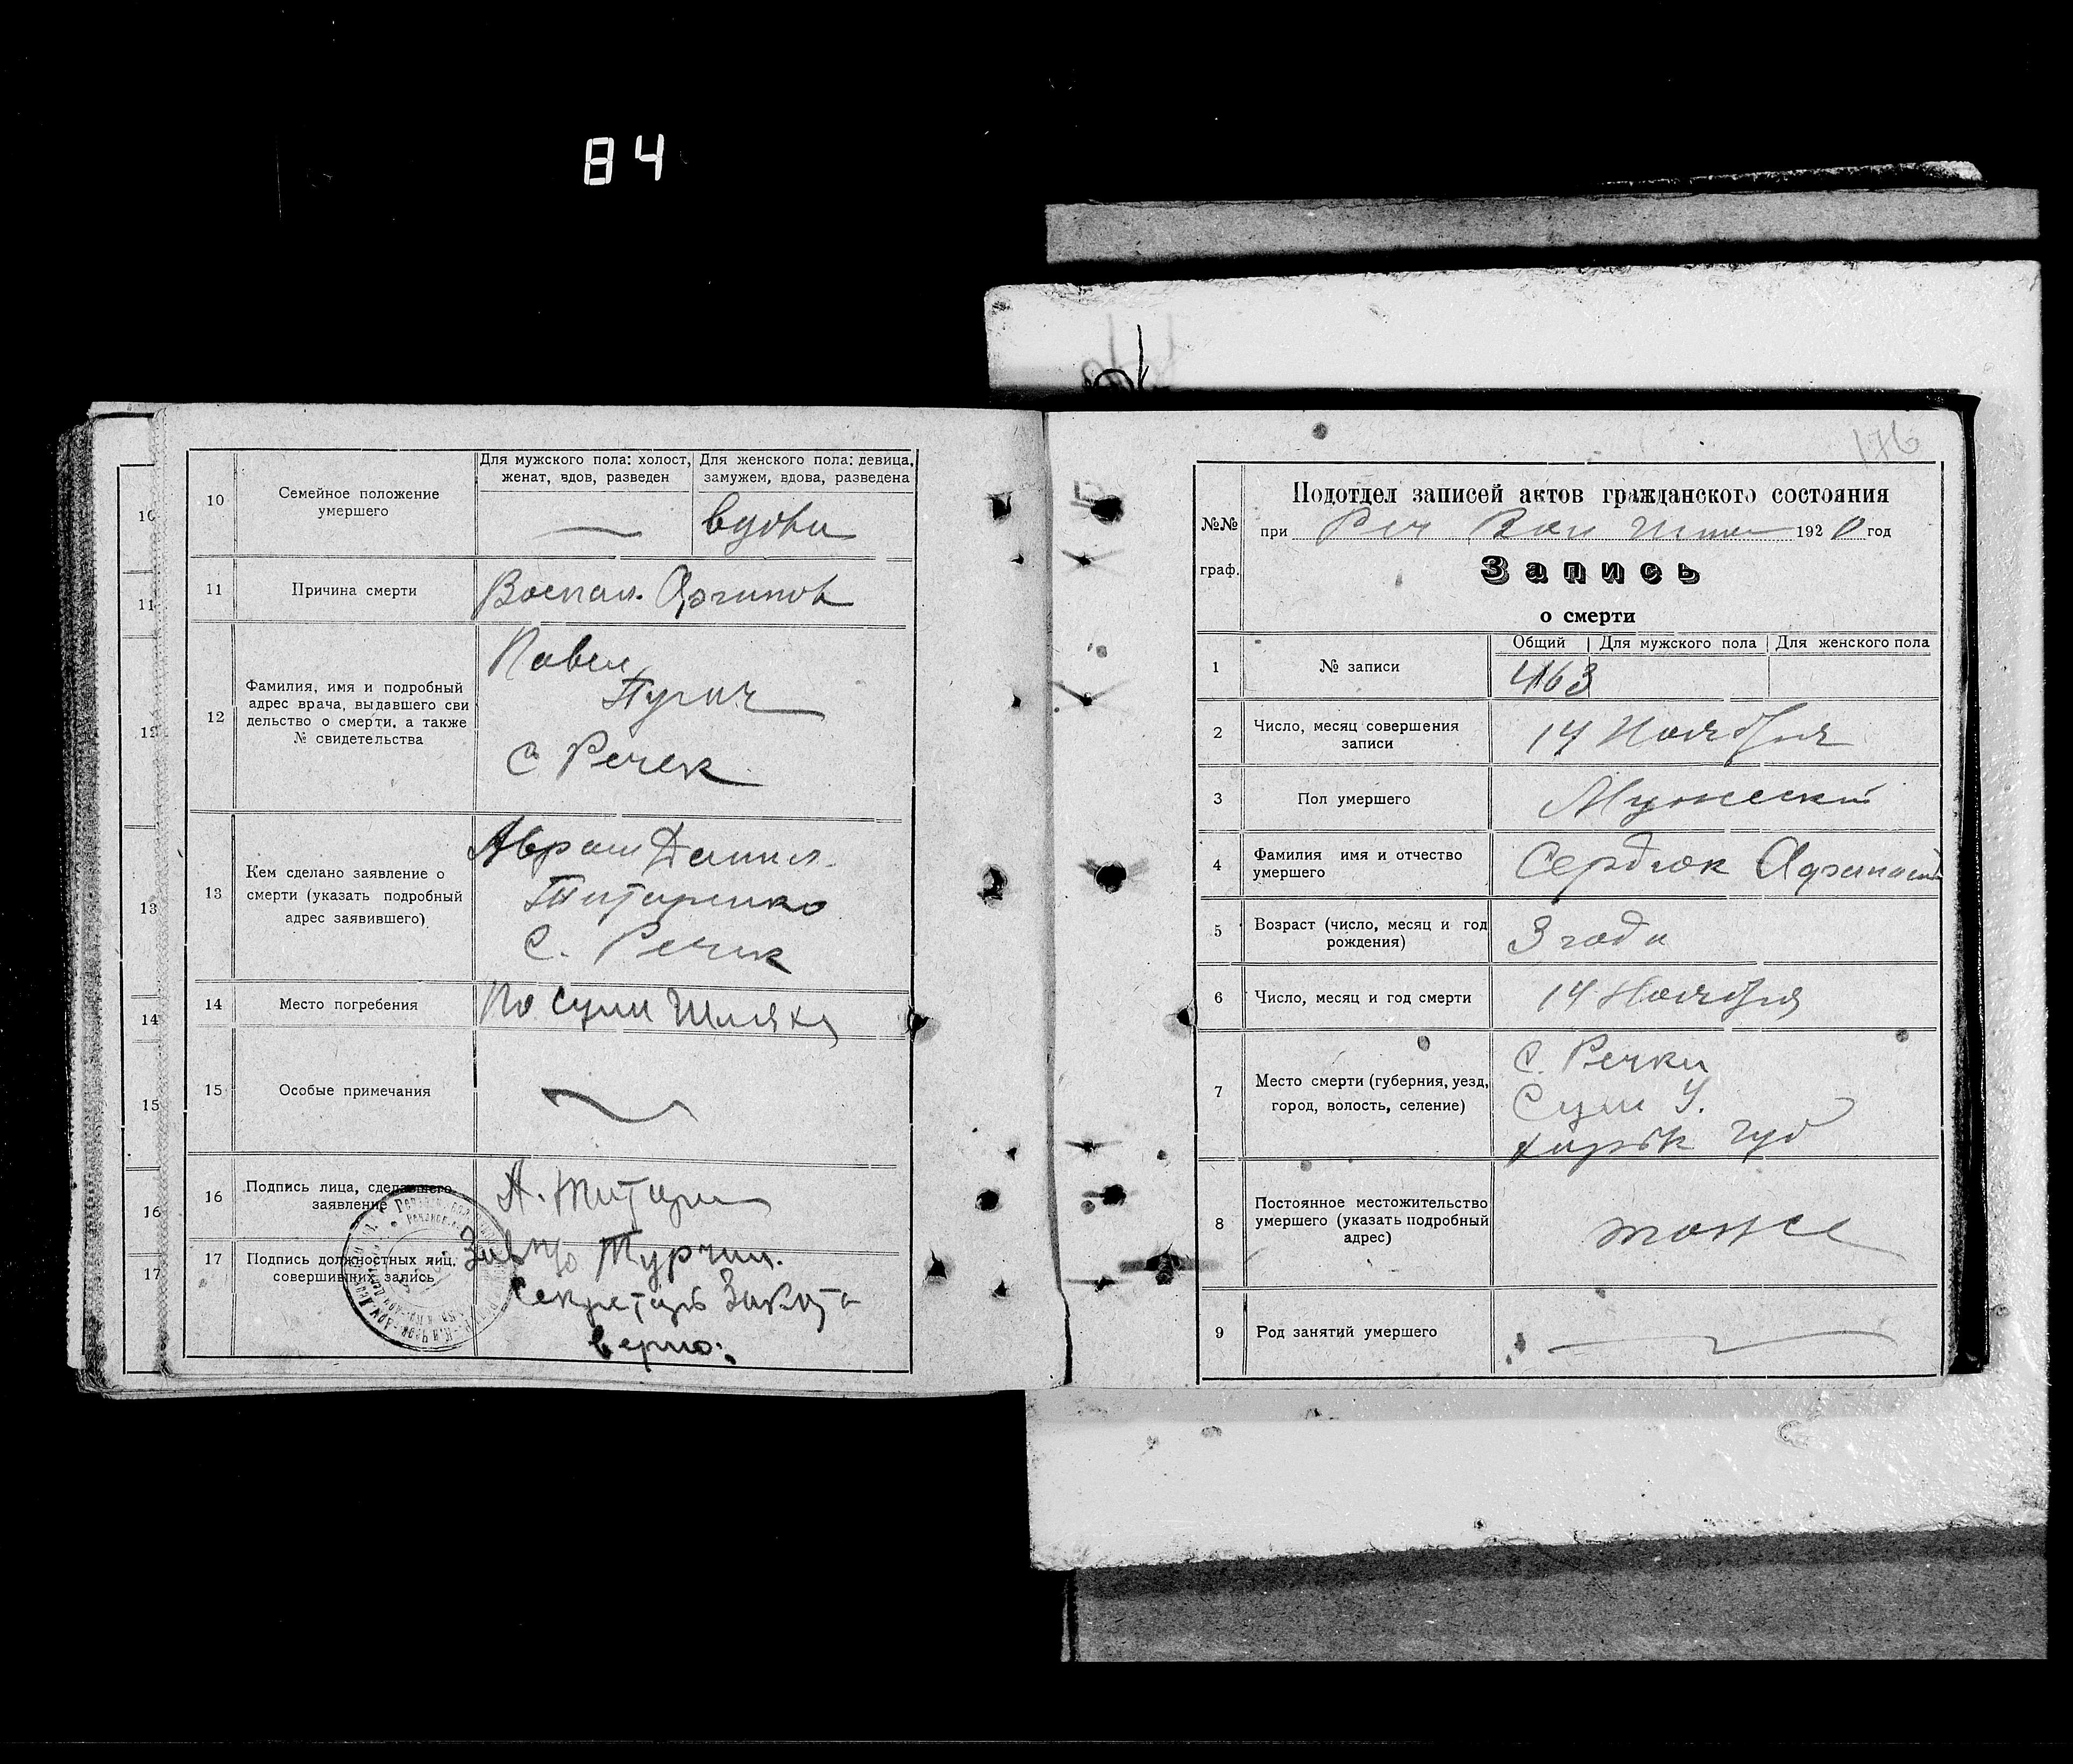 84
10
Семейное положение
умершего
Для мужского пола: холост,
женат, вдов, разведен
Для женского пола: девица,
замужем, вдова, разведена
вдова
11
Причина смерти
Воспал.
12
Фамилия, имя и подробный
адрес врача, выдавшего сви
дельство о смерти, а также
№ свидетельства
Павел
Пугач
С Речек
13
Кем сделано заявление о
смерти (указать подробный
адрес заявившего)
Аврам Данил.
Титаренко
С. Речек
14
Место погребения
По Сумм Шляху
15
Особые примечания
16
Подпись лица, сделавшего
заявление
А. Титарен
17
Подпись должностных лиц,
совершивших запись
Турчин.
Секретарь
Верно:
10
11
12
13
14
15
16
17
176
№№
граф.
Подотдел записей актов гражданского состояния
при Реч Вол 1920 год
Запись
о смерти
1
№ записи
Общий
Для мужского пола
Для женского пола
463
2
Число, месяц совершения
записи
14 Ноября
3
Пол умершего
Мужеский
4
Фамилия имя и отчество
умершего
Сердюк Афанасий
5
Возраст (число, месяц и год
рождения)
3 года
6
Число, месяц и год смерти
14 Ноября
7
Место смерти (губерния, уезд,
город, волость, селение)
С. Речки
Сум У.
Харьк губ
8
Постоянное местожительство
умершего (указать подробный
адрес)
тоже
9
Род занятий умершего